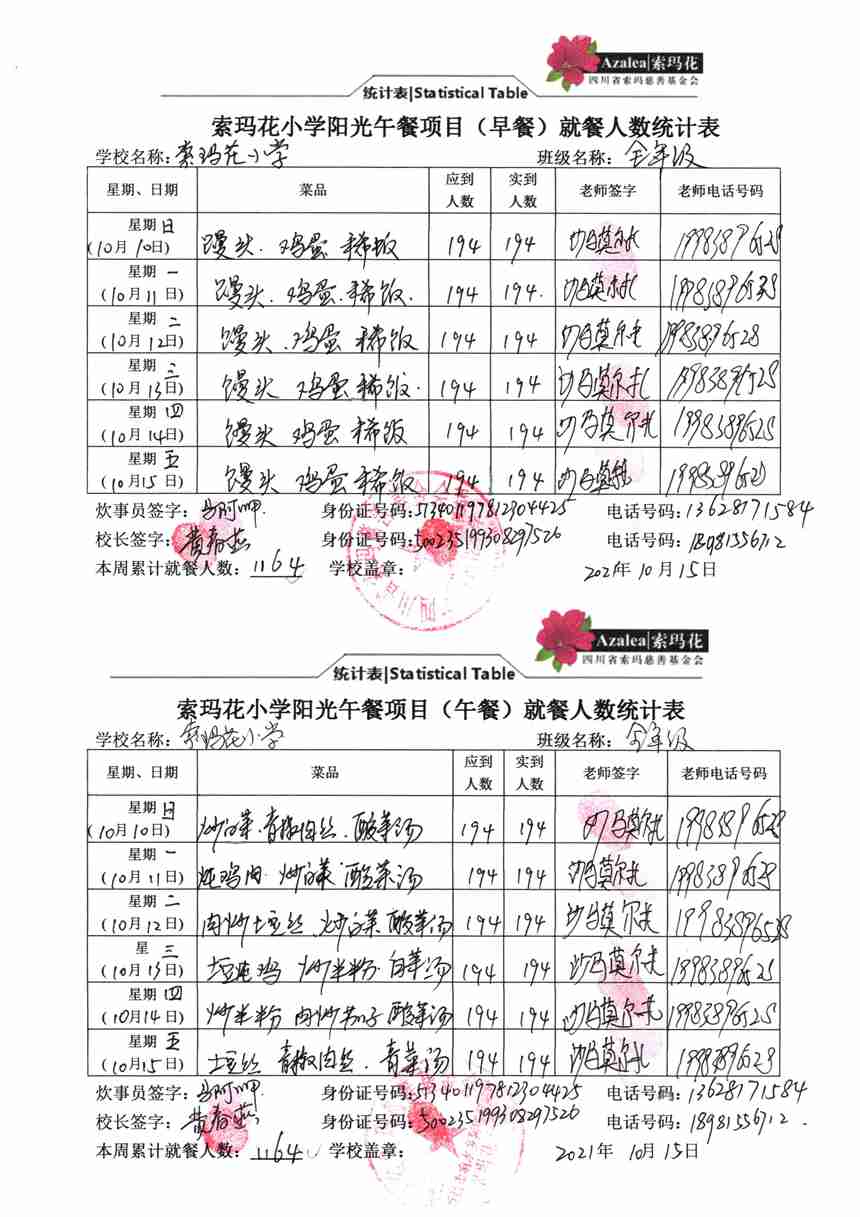 Azalea|索玛花
四川省索玛慈善基金会
统计表|Statistical Table
索玛花小学阳光午餐项目（早餐）就餐人数统计表
学校名称：索玛花小学 班级名称：全年级
星期、日期 菜品 应到人数 实到人数 老师签字 老师电话号码
星期日 (10月10日) 馒头.鸡蛋 稀饭 194 194
星期一 (10月11日) 馒头.鸡蛋.稀饭. 194 194.
星期二 (10月12日) 馒头.鸡蛋 稀饭 194 194
星期三 (10月13日) 馒头 鸡蛋 稀饭. 194 194
星期四 (10月14日) 馒头 鸡蛋 稀饭 194 194
星期五 (10月15日) 馒头 鸡蛋 稀饭 194 194
炊事员签字： 身份证号码: 电话号码:13628171584
校长签字:黄春燕 身份证号码:500235199308297526 电话号码:18981556712
本周累计就餐人数：1164 学校盖章： 2021年10月15日
Azalea|索玛花
四川省索玛慈善基金会
统计表|Statistical Table
索玛花小学阳光午餐项目（午餐）就餐人数统计表
学校名称：索玛花小学 班级名称：全年级
星期、日期 菜品 应到人数 实到人数 老师签字 老师电话号码
星期日 (10月10日) 炒白菜.青椒肉丝.酸菜汤 194 194
星期一 (10月11日) 炖鸡肉 炒白菜 酸菜汤 194 194
星期二 (10月12日) 肉炒土豆丝 炒白菜 酸菜汤 194 194
星 三 (10月13日) 土豆炖鸡 炒米粉 白菜汤 194 194
星期四 (10月14日) 炒米粉 肉炒 酸菜汤 194 194
星期五 (10月15日) 土豆丝 青椒肉丝.青菜汤 194 194
炊事员签字： 身份证号码: 电话号码:13628171584
校长签字：黄春燕 身份证号码:500235199308297526 电话号码:18981556712.
本周累计就餐人数：1164 学校盖章： 2021年10月15日